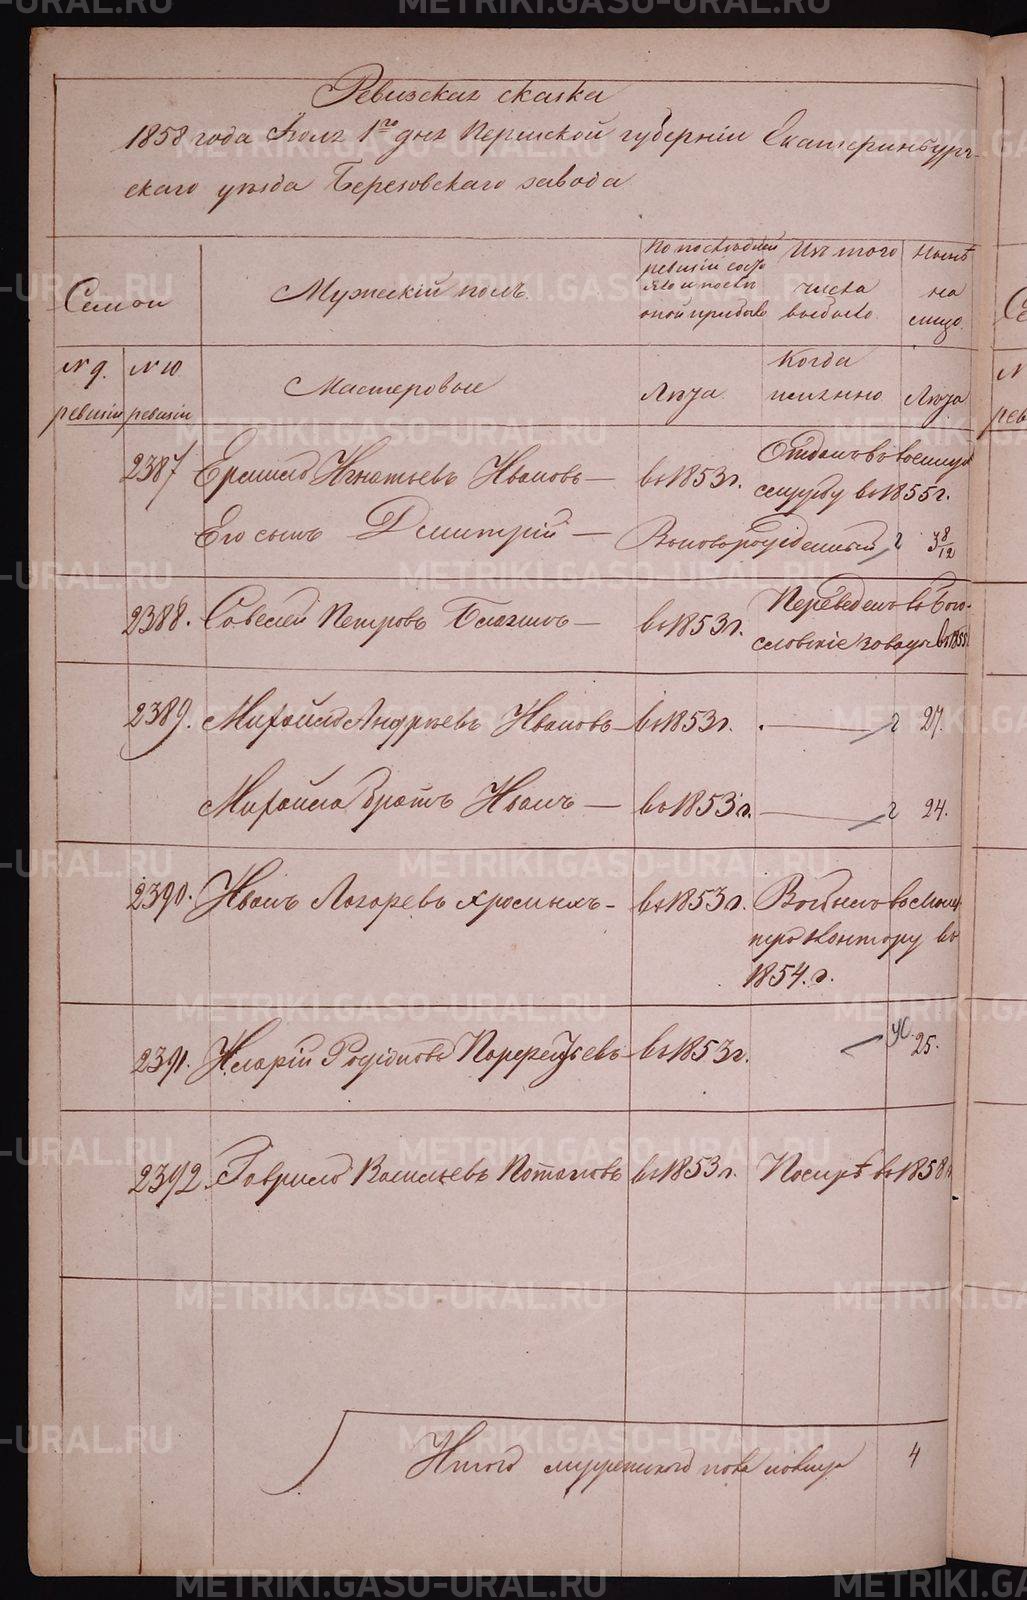 Ревизская сказка
1858 года Іюля 1го дня Пермской губерніи Екатеринбург-
скаго уѣзда Березовскаго завода
Семьи
Мужескій полъ.
По последней ревизіи состояло и послѣ оной прибыло
Изъ того числа выбыло
Нынѣ на лицо
№ 9. ревизіи
№ 10 ревизіи
Мастеровые
Лѣта.
Когда именно
Лѣта
2387 Ермилъ Игнатьевъ Ивановъ — въ 1853 г. Отданъ въ военную службу въ 1855 г.
Его сынъ Дмитрій — Вновьрожденный 2 3 8/12
2388. Савелій Петровъ — въ 1853 г. Переведенъ въ Бого-
словскіе заводы въ 1855
2389. Михайло Андреевъ Ивановъ — въ 1853 г. — 2 27.
Михайла братъ Иванъ — въ 1853 г. — 2 24.
2390. Иванъ Лазаревъ — въ 1853 г. въ
контору въ
1854. г.
2391. Иларій Родіоновъ Парфентьевъ — въ 1853 г. 25.
2392. Гаврило Васильевъ Потаповъ въ 1853 г. Помѣръ въ 1858 г.
Итого мужескаго пола налицо 4
METRIKI.GASO-URAL.RU